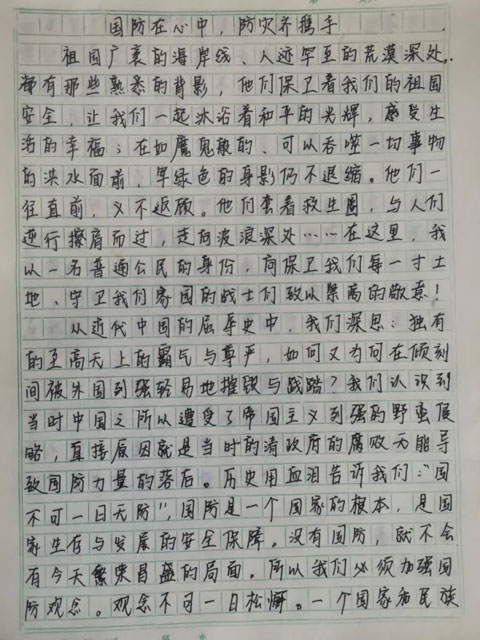 国防在心中，防灾齐携手
祖国广袤的海岸线、人迹罕至的荒漠深处，
都有那些熟悉的背影，他们保卫着我们的祖国
安全，让我们一起沐浴着和平的光辉，感受生
活的幸福；在如魔鬼般的、可以吞噬一切事物
的洪水面前，军绿色的身影仍不退缩。他们一
往直前，义不返顾。他们套着救生圈，与人们
逆行擦肩而过，走向波浪深处……在这里，我
以一名普通公民的身份，向保卫我们每一寸土
地、守卫我们家园的战士们致以崇高的敬意！
从近代中国的屈辱史中，我们深思：独有
的至高无上的霸气与尊严，如何又为何在倾刻
间被外国列强轻易地摧毁与践踏？我们认识到
当时中国之所以遭受了帝国主义列强的野蛮侵
略，直接原因就是当时的清政府的腐败无能导
致国防力量的落后。历史用血泪告诉我们：“国
不可一日无防”，国防是一个国家的根本，是国
家生存与发展的安全保障。没有国防，就不会
有今天繁荣昌盛的局面。所以我们必须加强国
防观念。观念不可一日松懈。一个国家和民族